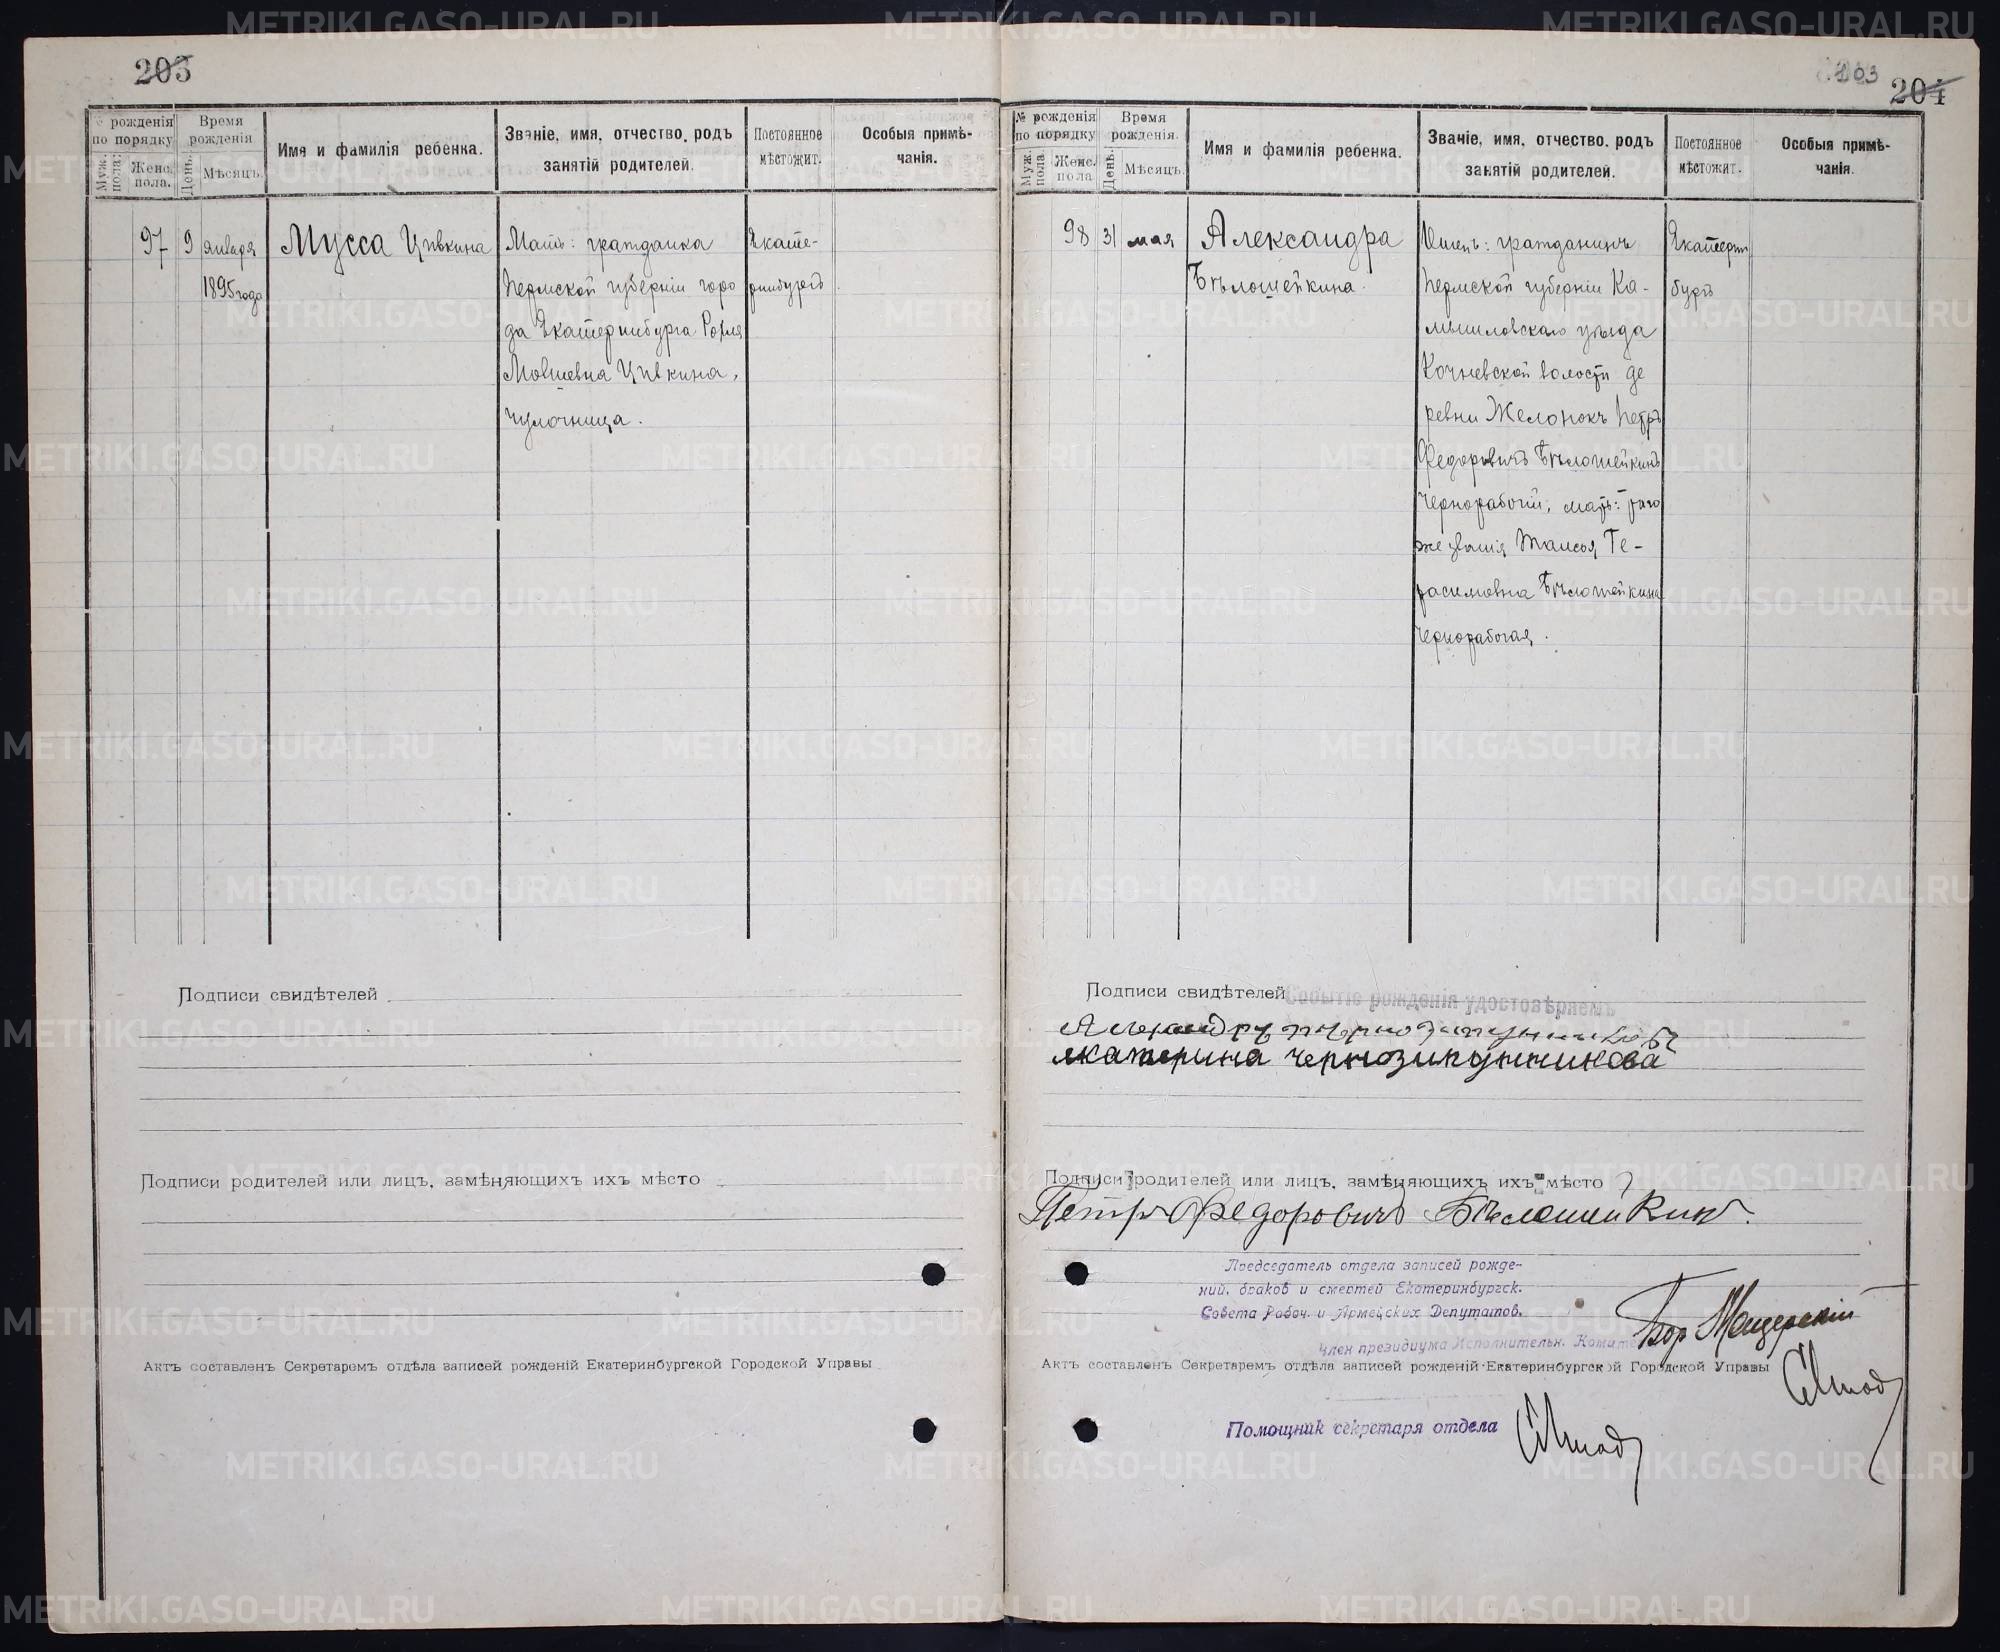 205
№ рожденія
по порядку
Муж. пола.
Женс. пола.
Время
рожденія
День.
Мѣсяцъ.
Имя и фамилія ребенка.
Званіе, имя, отчество, родъ
занятій родителей.
Постоянное
мѣстожит.
Особыя примѣ-
чанія.
97 9 января
1895 года
Мусса Цивкина
Мать: гражданка
Пермской губерніи горо
да Екатеринбурга
Мовшевна Цивкина,
чулочница.
Екате-
ринбургъ
Подписи свидѣтелей
Подписи родителей или лицъ, замѣняющихъ ихъ мѣсто
Актъ составленъ Секретаремъ отдѣла записей рожденій Екатеринбургской Городской Управы
203
204
№ рожденія
по порядку
Муж. пола.
Женс. пола
Время
рожденія.
День.
Мѣсяцъ.
Имя и фамилія ребенка.
Званіе, имя, отчество, родъ
занятій родителей.
Постоянное
мѣстожит.
Особыя примѣ-
чанія.
98 31 мая
Александра
Бѣлошейкина.
Отецъ: гражданинъ
Пермской губерніи Ка-
мышловскаго уѣзда
Кочневской волости де
ревни Желонокъ Петръ
Федоровичъ Бѣлошейкинъ
чернорабочій, мать: того
же званія Таисья Ге-
расимовна Бѣлошейкина
чернорабочая.
Екатерин
бургъ
Подписи свидѣтелей
Событіе рожденія удостовѣряемъ
екатерина чернозипунникова
Подписи родителей или лицъ, замѣняющихъ ихъ мѣсто
Петръ Федоровичъ Бѣлошейкинъ.
Председатель отдела записей рожде-
ний, браков и смертей Екатеринбургск.
Совета Рабоч. и Армейских Депутатов.
Член президиума Исполнительн. Комитета
Актъ составленъ Секретаремъ отдѣла записей рожденій Екатеринбургской Городской Управы
Помощник секретаря отдела
METRIKI.GASO-URAL.RU